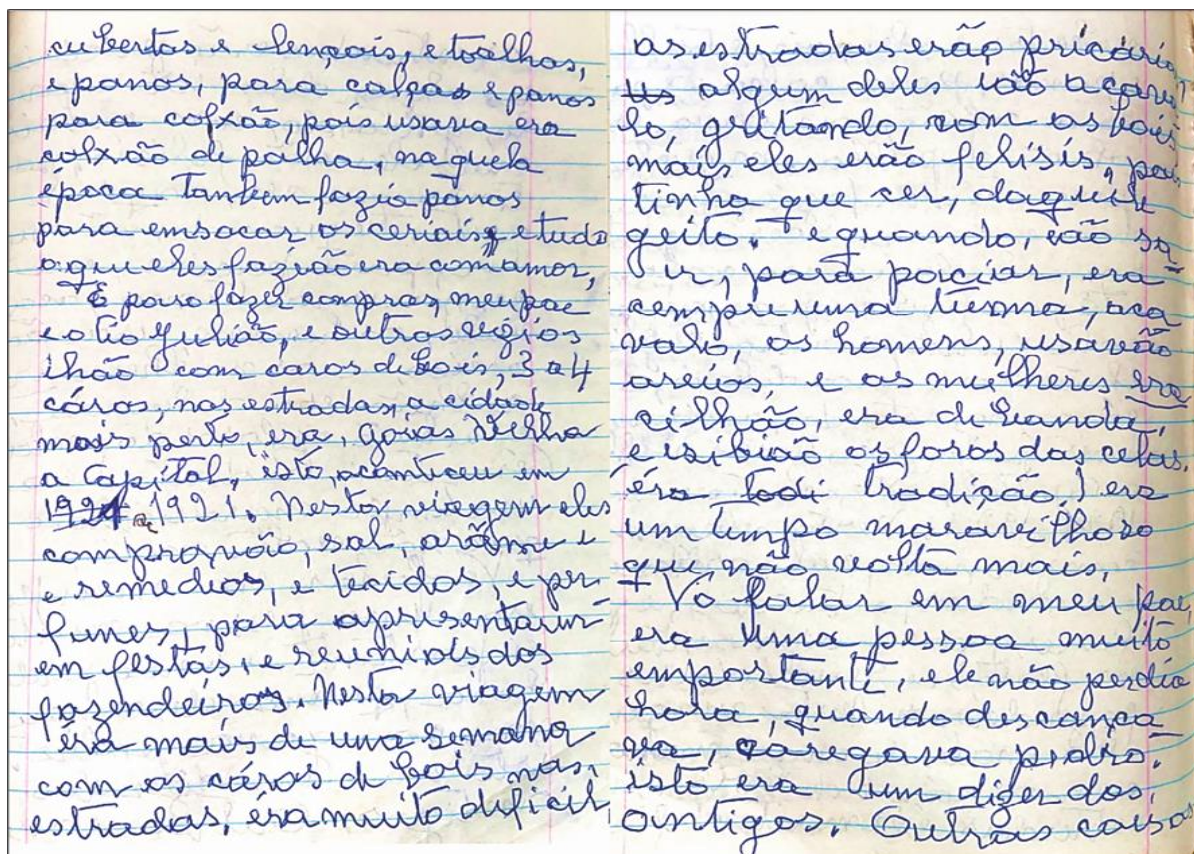 cubertas e lençois, e toalhas,
e panos, para calças e panos
para colxão, pois usava era
colxão de palha, naquela
época tambem fazia panos
para emsacar os ceriais, e tudo
o que eles fazião era com amor,
E para fazer compras, meu pae
e o tio Julião, e outros
ihão com caros de bois, 3 a 4
cáros, nas estradas, a cidade
mais perto, era, goiás Velha
a Capital, isto, aconticeu em
1921. Nesta viagem eles
compravão, sal, arãme e
e remedios, e tecidos, e per
fumes, para apresentarin
em festas, e reuniois dos
fazendeiros. Nesta viagem
éra mais de uma semana
com os cáros de bois nas,
estradas, éra muito dificil
as estradas erão pricária
algum deles ião a cava
lo, gritando, com os bois
máis eles erão felisis, pois
tinha que cer, daquele
geito. e quando, ião sa
ir, para paciar, era
cempre uma turma, aca
valo, os homens, usavão
areios, e as mulheres era
cilhão, era de banda,
e isibião os foros das celas.
éra todi tradição, era
um tempo maravilhoso
que não volta mais,
Vo falar em meu pae,
era uma pessoa muito
emportante, ele não perdia
hora, quando descança
va, caregava pedra.
isto era um dizer dos,
antigos. Outras coisas